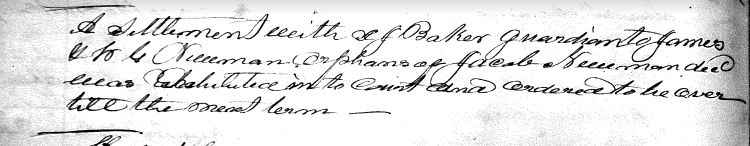 A Settlement with J Baker guardian to James
& W G Newman orphans of Jacob Newman decd
was Exhibited into Court and ordered to lie over
till the next term —